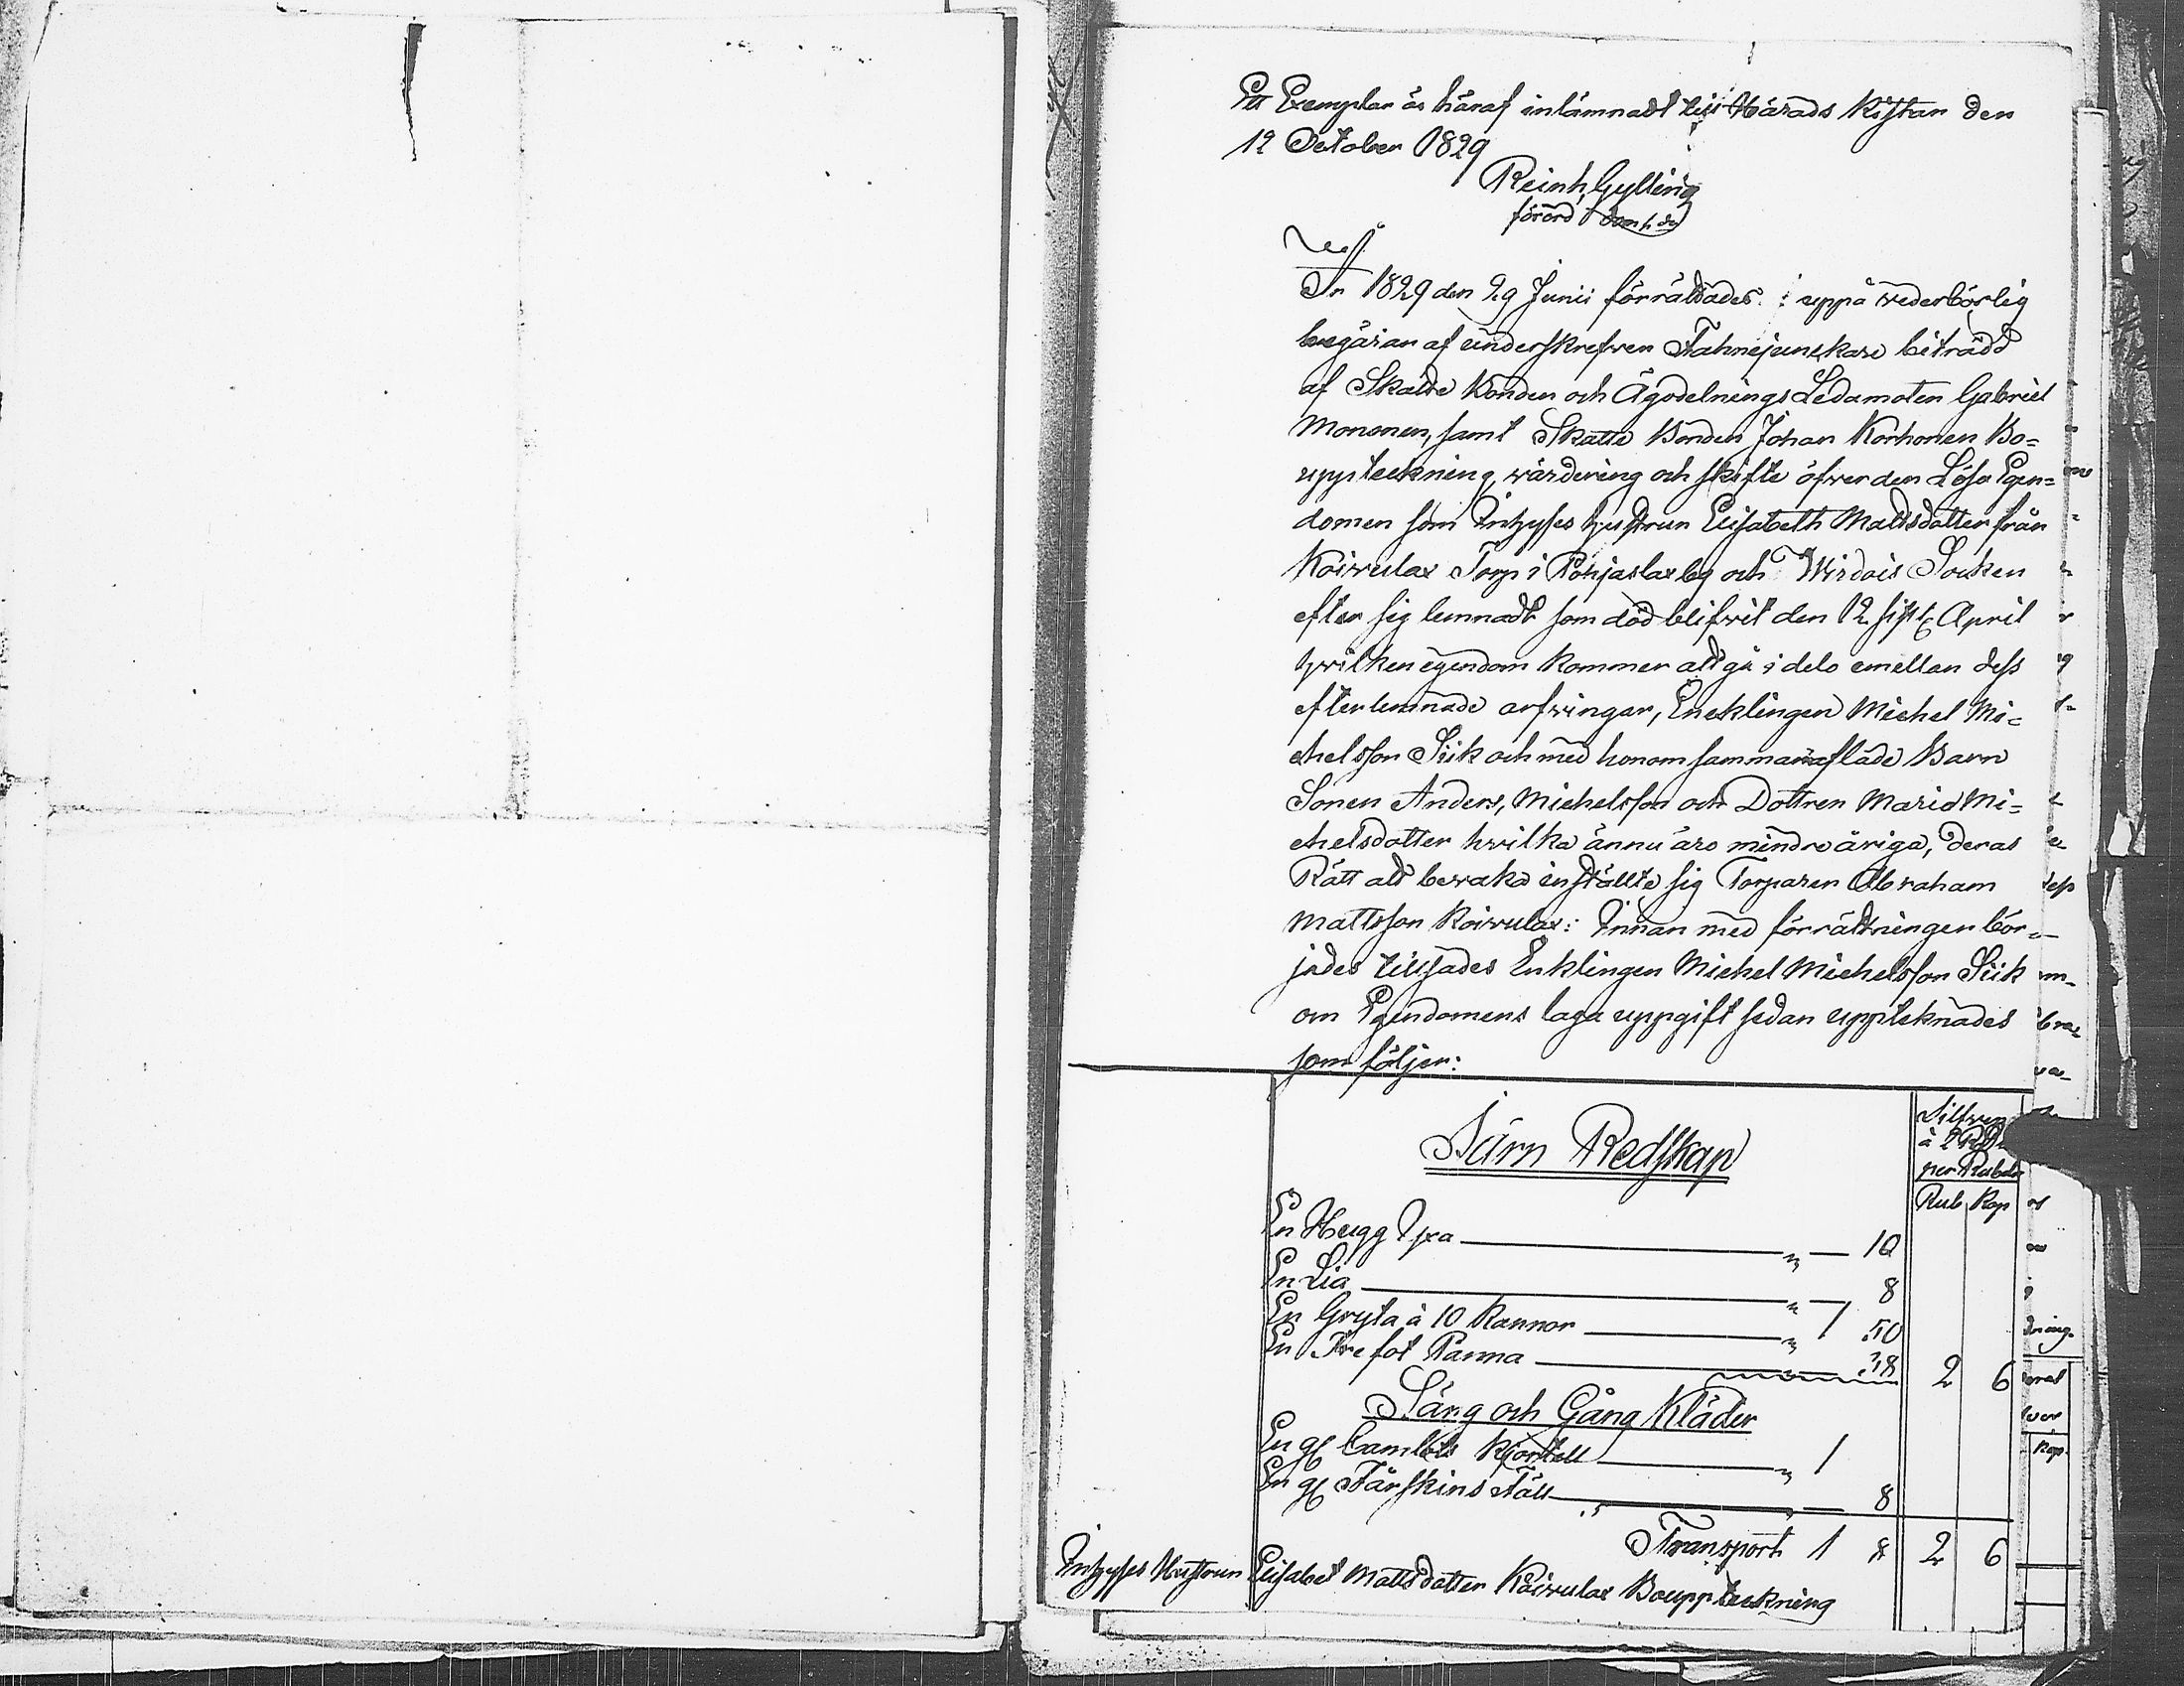 Ett Exemplar är häraf inlämnadt till Härads Kistan den
12 October 1829
Reinh. Gyllting
förord
År 1829 den 29 Junii förrättades uppå wederbörlig
begäran af underskrefven Fahnejunkare biträdd
af Skatte Bonden och Ägodelnings Ledamoten Gabriel
Mononen, samt Skatte Bonden Johan Korhonen Bo=
uppteckning, wärdering och skifte öfwer den Lösa Egen=
domen som Inhyses hustrun Elisabeth Mattsdotter från
Koiwulax Torp i Pohjaslax by och Wirdois Socken
efter sig lemnadt som död blifwit den 12 sistl. April
hwilken egendom kommer att gå i delo emellan dess
efterlemnade arfwingar, Eneklingen Michel Mi=
chelsson Siik och med honom sammanaflade Barn
Sonen Anders, Michelsson och Dottren Maria Mi=
chelsdotter hwilka ännu äro mindre åriga, deras
Rätt att bewaka inställte sig Torparen Abraham
Mattsson Koiwulax: Innan med förrättningen bör=
jades tillsades Enklingen Michel Michelsson Siik
om Egendomens laga uppgift sedan uppteknades
som följer:
Silfwer
à 2
per Rubel
Järn Redskap
Rub Kop
En Hugg Yxa " — 10
En Lia " — 8
En Gryta à 10 Kannor " 1 50
En Trefot Panna — 38 2 6
Säng och Gång Kläder
En gl Camlots Kjortell " 1
En gl Fårskins Fäll " — 8
Transport 1 8 2 6
Inhyses Hustrun Elisabet Mattsdotter Koiwulax Bouppteckning